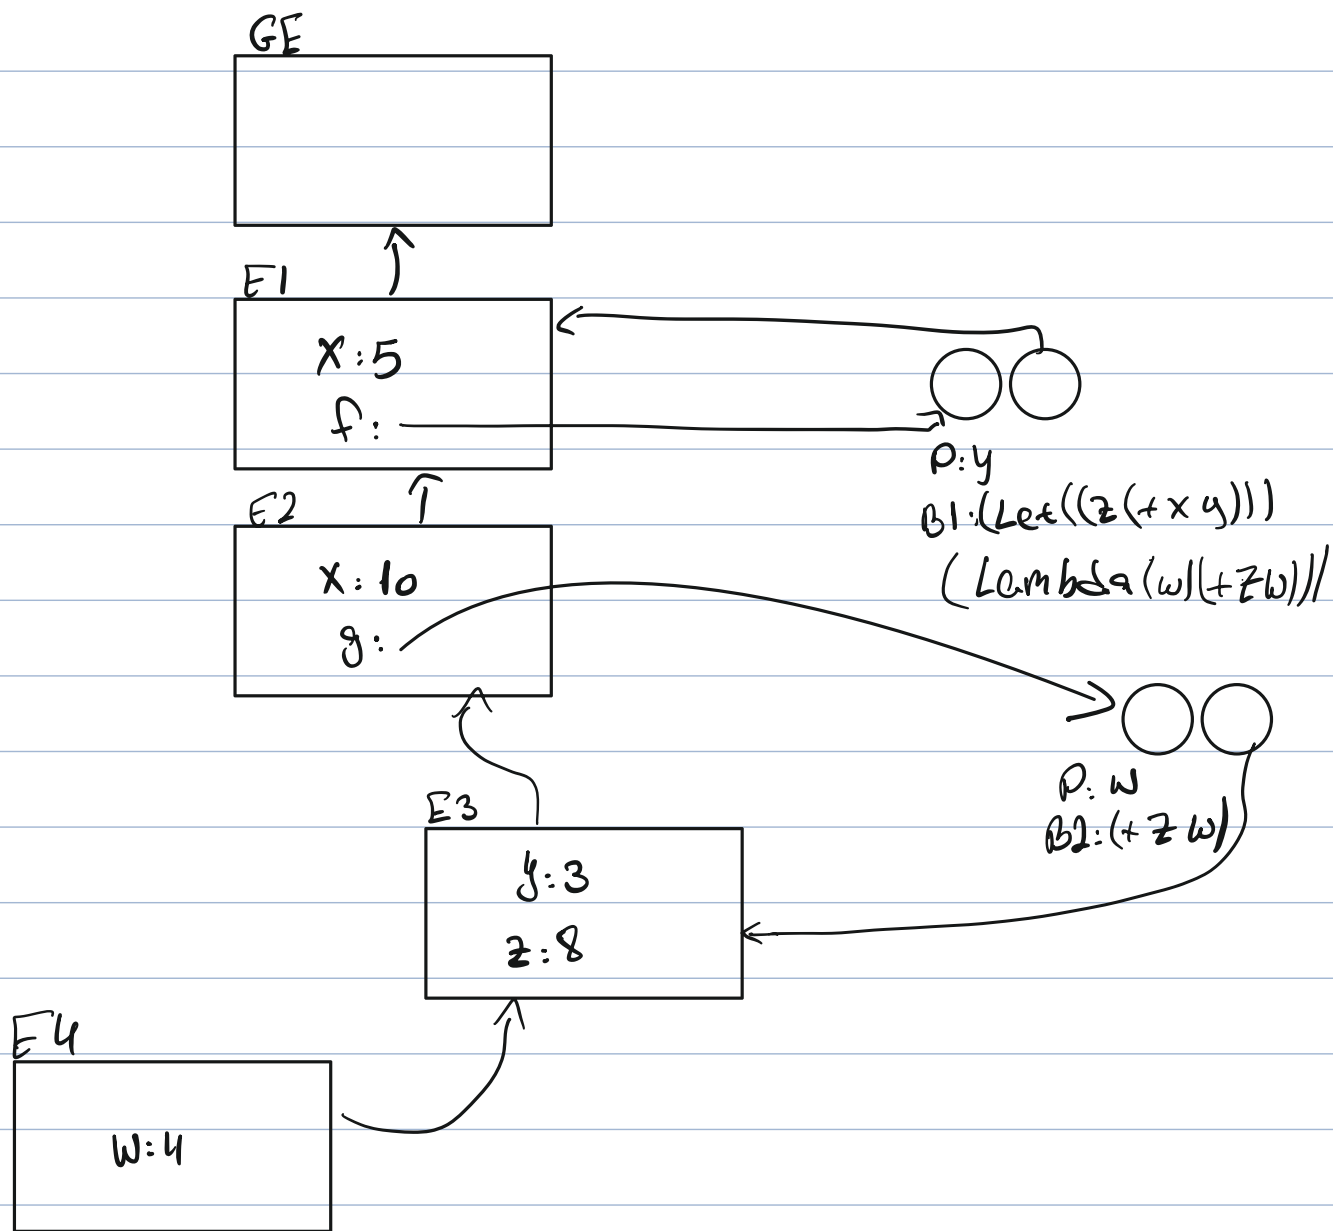 GE
E1
X:5
f:
P:y
B1:(Let((z(+ x y)))
(Lambda(w)(+zw)))
E2
X:10
g:
P:w
B2:(+ z w)
E3
y:3
z:8
E4
W:4